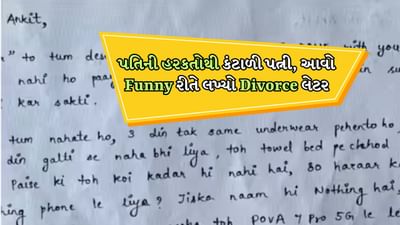 Ankit,
પતિની હરકતોથી કંટાળી પત્ની, આવો
Funny રીતે લખ્યો Divorce લેટર
" to tum des with you
nahi ho pao
kar sakti.
tum nahate ho, 3 din tak same underwear pehento ho,
din galti se naha bhi liya, toh towel bed pe chhod
Paise ki toh koi kadar hi nahi hai, 30 hazaar k
ing phone le liya? Jiska naam hi Nothing hai,
toh POVA 7 Pro 5G le le